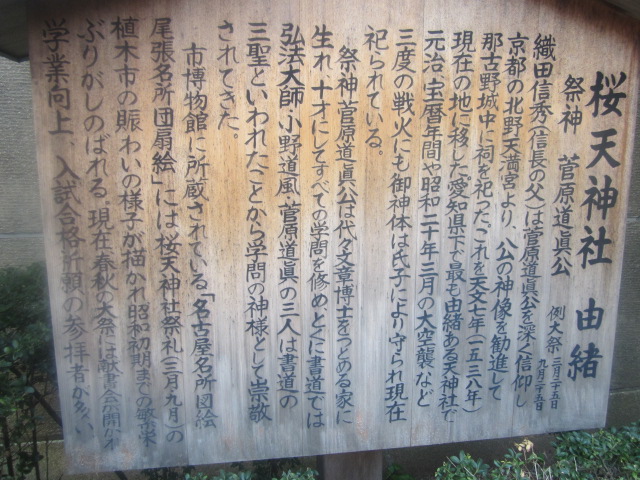 桜天神社 由緒
祭神 菅原道真公
例大祭 三月二十五日
九月二十五日
織田信秀(信長の父)は菅原道真公を深く信仰し
京都の北野天満宮より、公の神像を勧進して
那古野城中に祠を祀った。これを天文七年(一五三八年)
現在の地に移した。愛知県下で最も由緒ある天神社で
元治、宝暦年間や昭和二十年三月の大空襲など
三度の戦火にも御神体は氏子により守られ現在
祀られている。
祭神菅原道真公は代々文章博士をつとめる家に
生れ、十才にしてすべての学問を修め、とくに書道では
弘法大師・小野道風・菅原道真の三人は書道の
三聖といわれたことから学問の神様として崇敬
されてきた。
市博物館に所蔵されている「名古屋名所図絵
尾張名所団扇絵」には桜天神社祭礼(三月九月)の
植木市の賑わいの様子が描かれ昭和初期までの繁栄
ぶりがしのばれる。現在春秋の大祭には献書会が開かれ
学業向上、入試合格祈願の参拝者が多い。